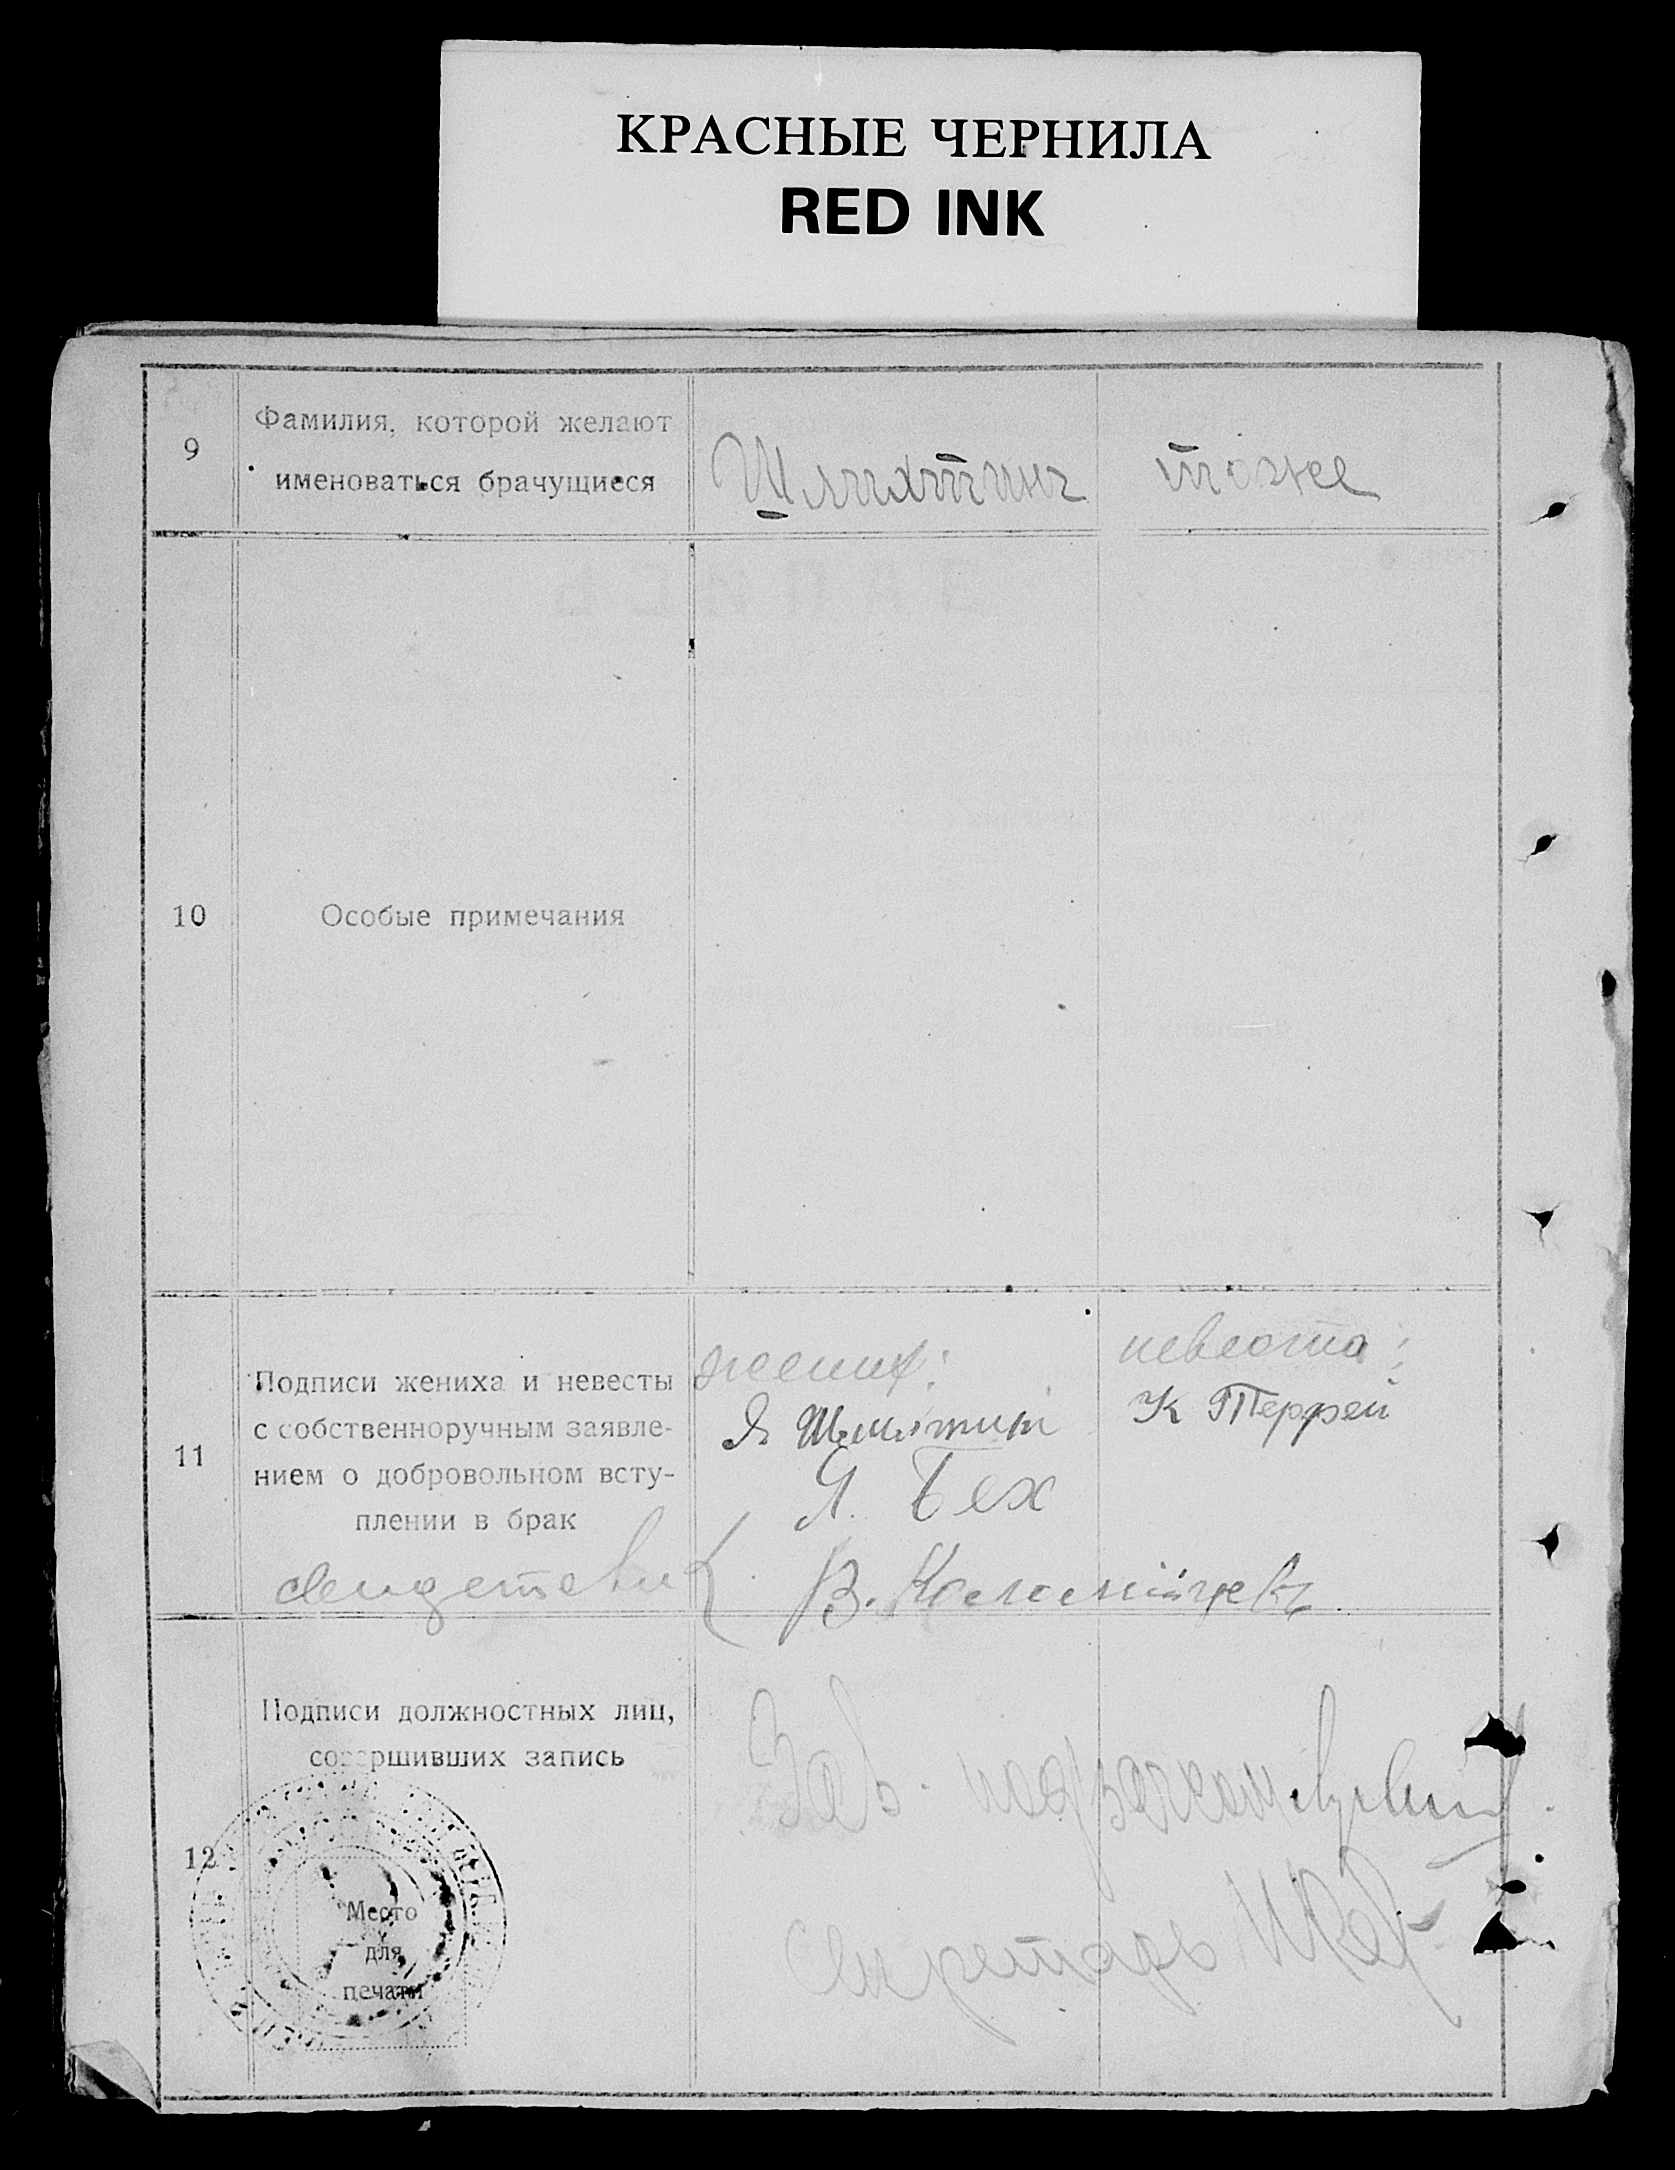 КРАСНЫЕ ЧЕРНИЛА
RED INK
9
Фамилия, которой желают
именоваться брачущиеся
Шлихтинг
тоже
10
Особые примечания
11
Подписи жениха и невесты
с собственноручным заявле-
нием о добровольном всту-
плении в брак
жених:
невеста:
Я. Бех
К Террей
свидетели
В.
12
Подписи должностных лиц,
совершивших запись
Зав.
Секретарь
Место
для
печати